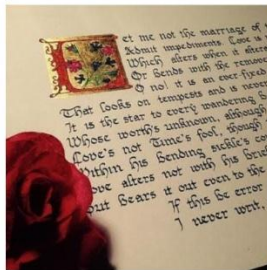 Let me not the marriage of
Admit impediments. Love is
Which alters when it altera
Or bends with the remove
O no! it is an ever fixed
That looks on tempests and is never
It is the star to every wandering b
Whose worth's unknown, although
Love's not Time's fool, though
Within his bending sickle's co
ove alters not with his brie
But bears it out even to the
If this be error
I never writ,